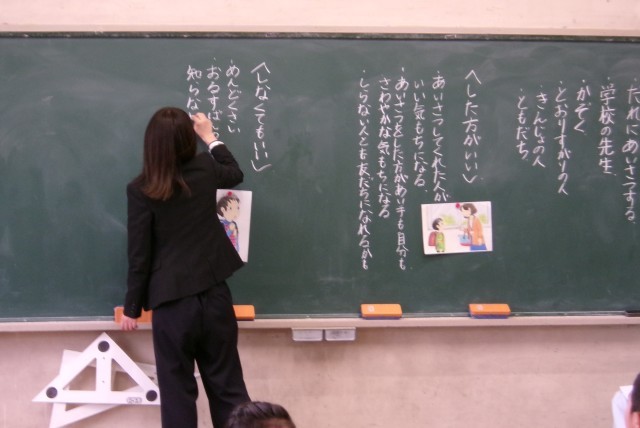 だれにあいさつする。
・学校の先生
・かぞく
・とおりすがりの人
・きんじょの人
・ともだち。
〈した方がいい〉
・あいさつしてくれた人が
いい気もちになる
・あいさつをした方があい手も自分も
さわやかな気もちになる
・しらない人とも友だちになれるかも
〈しなくてもいい〉
・めんどくさい
・おるすば
・知らな